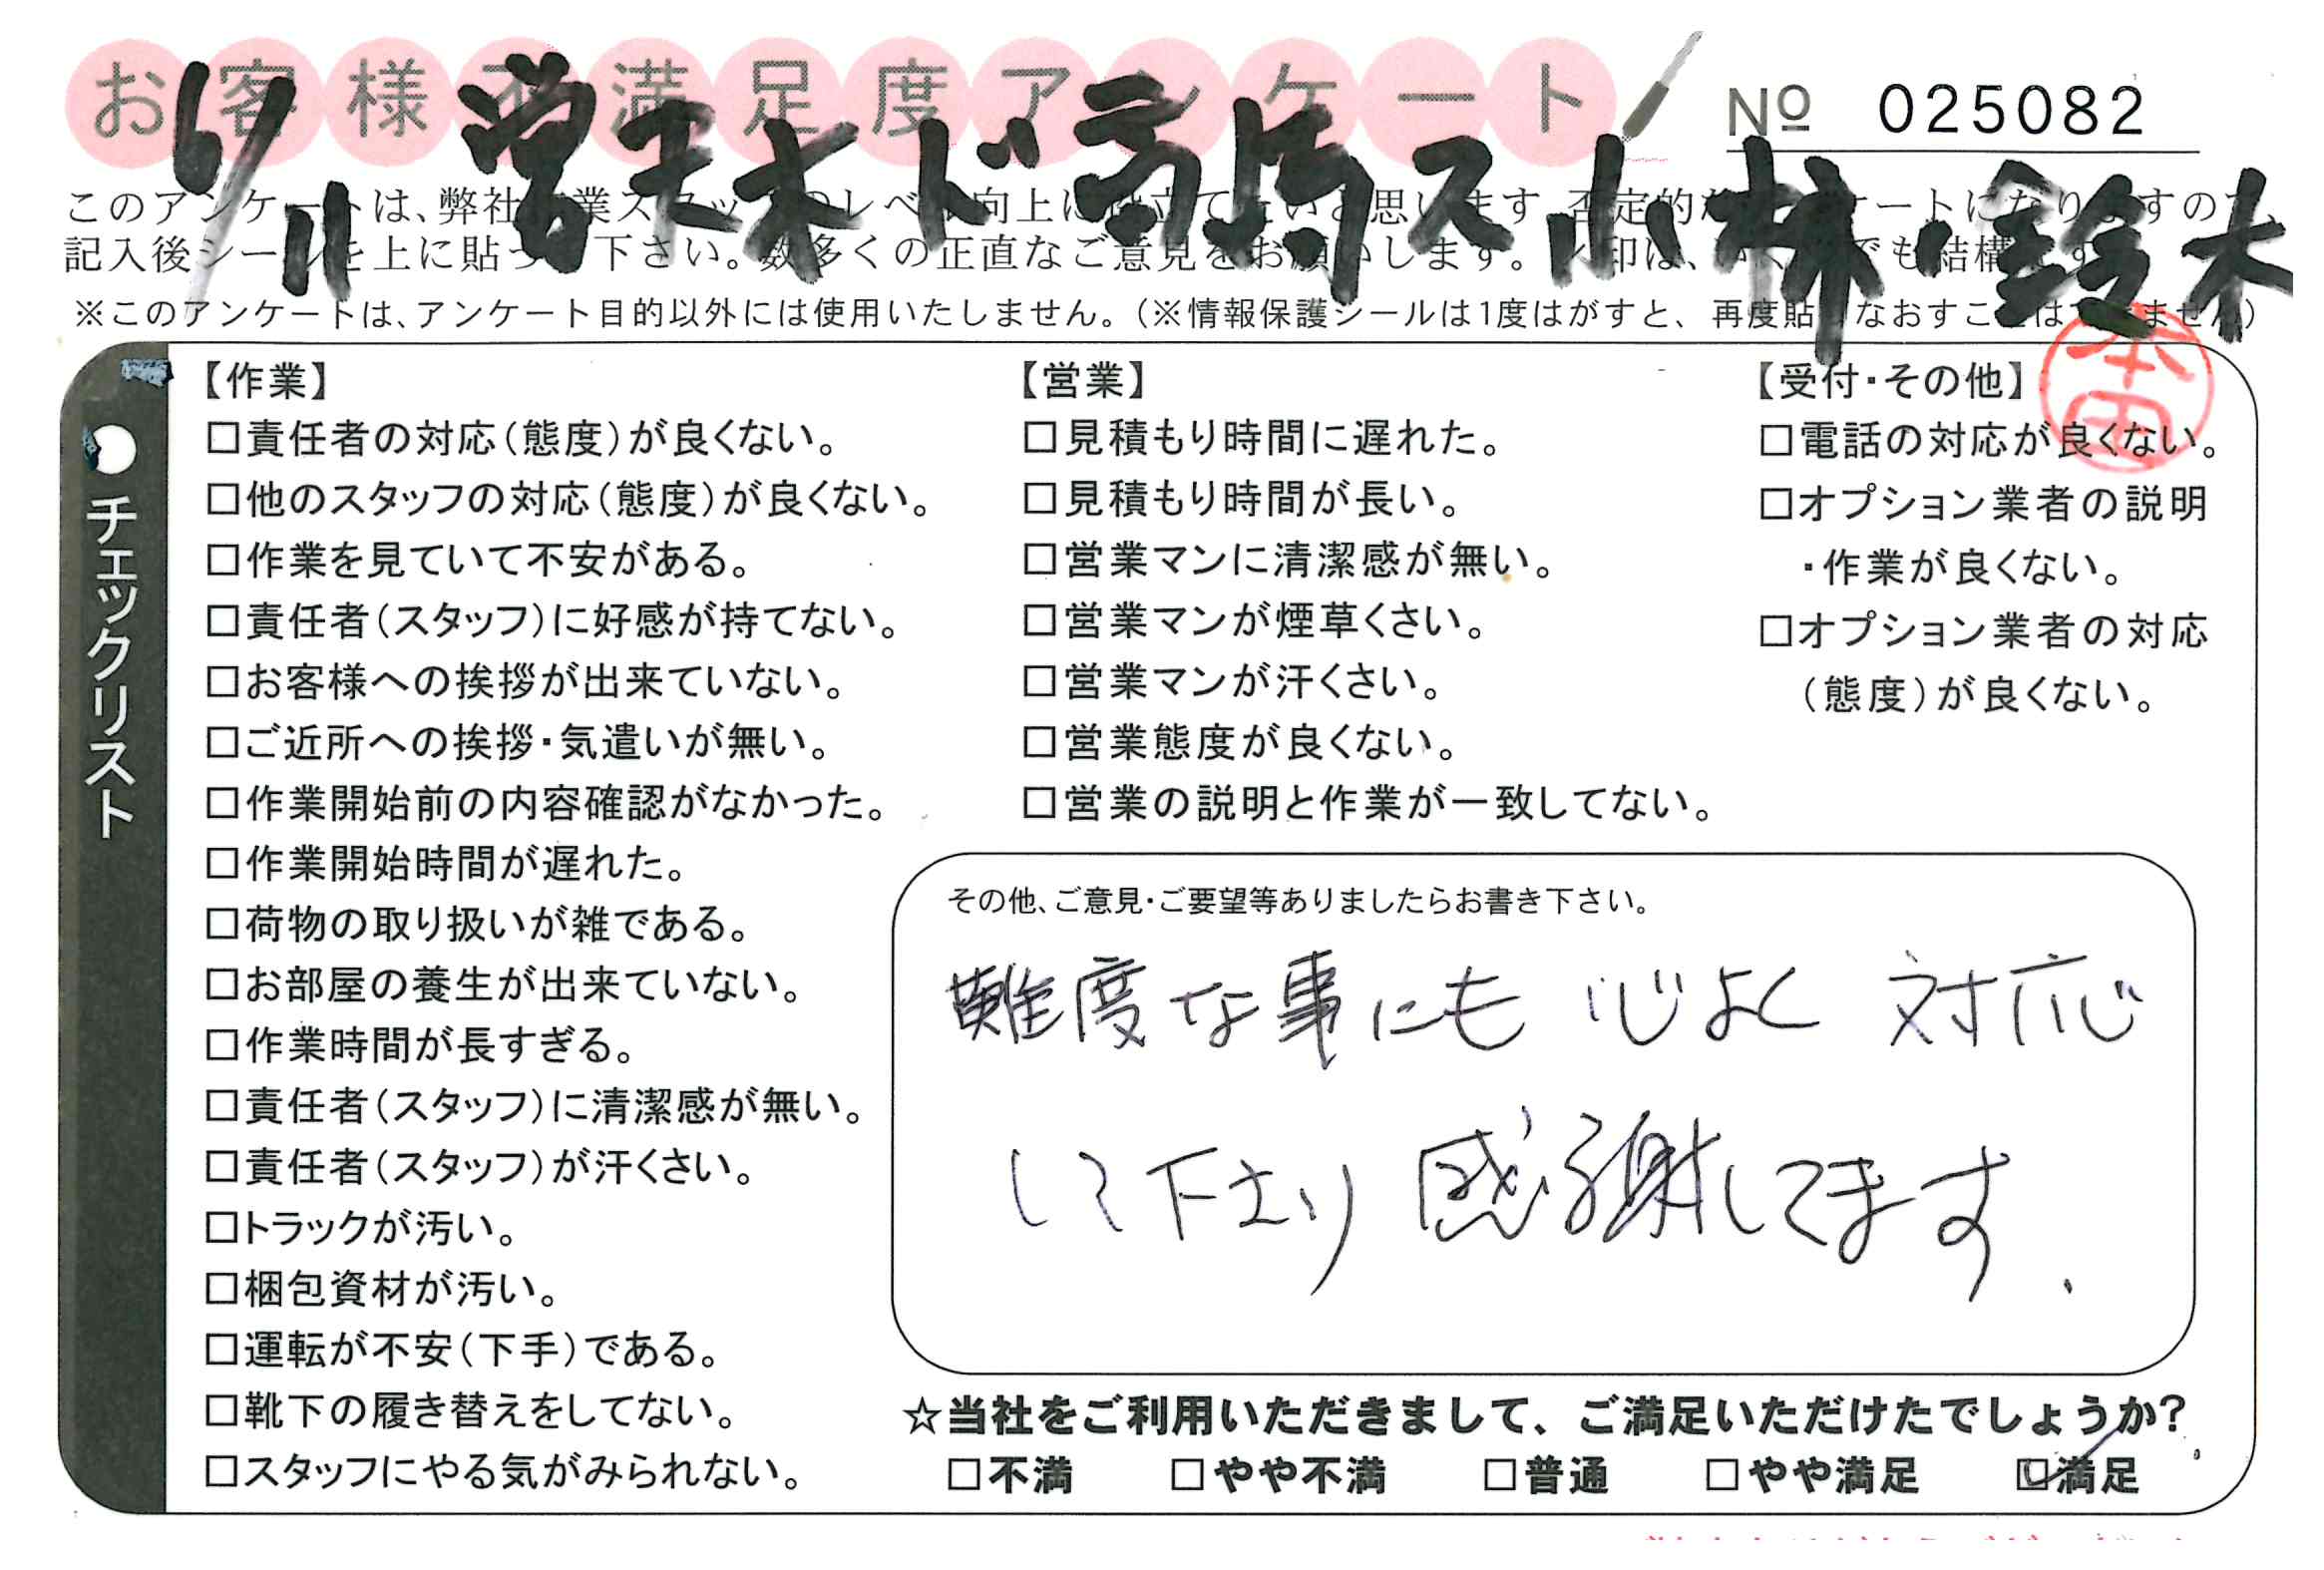 お客様不満足度アンケート
Nº 025082
6/11 営 天木 ド 高橋 ス 小林・鈴木
このアンケートは、弊社作業スタッフのレベル向上に役立てたいと思います。否定的なアンケートになりますので、
記入後シールを上に貼って下さい。数多くの正直なご意見をお願いします。レ印は、いくつでも結構です。
※このアンケートは、アンケート目的以外には使用いたしません。(※情報保護シールは1度はがすと、再度貼りなおすことはできません)
本田
チェックリスト
【作業】
□責任者の対応(態度)が良くない。
□他のスタッフの対応(態度)が良くない。
□作業を見ていて不安がある。
□責任者(スタッフ)に好感が持てない。
□お客様への挨拶が出来ていない。
□ご近所への挨拶・気遣いが無い。
□作業開始前の内容確認がなかった。
□作業開始時間が遅れた。
□荷物の取り扱いが雑である。
□お部屋の養生が出来ていない。
□作業時間が長すぎる。
□責任者(スタッフ)に清潔感が無い。
□責任者(スタッフ)が汗くさい。
□トラックが汚い。
□梱包資材が汚い。
□運転が不安(下手)である。
□靴下の履き替えをしてない。
□スタッフにやる気がみられない。
【営業】
□見積もり時間に遅れた。
□見積もり時間が長い。
□営業マンに清潔感が無い。
□営業マンが煙草くさい。
□営業マンが汗くさい。
□営業態度が良くない。
□営業の説明と作業が一致してない。
【受付・その他】
□電話の対応が良くない。
□オプション業者の説明
・作業が良くない。
□オプション業者の対応
(態度)が良くない。
その他、ご意見・ご要望等ありましたらお書き下さい。
難度な事にも 心よく 対応
して下さり 感謝してます.
☆当社をご利用いただきまして、ご満足いただけたでしょうか?
□不満 □やや不満 □普通 □やや満足 ☑満足